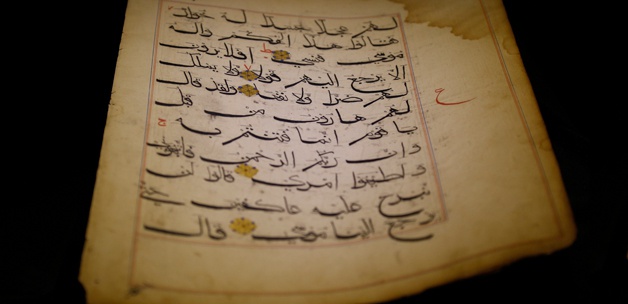 لهم عجلا جسدا له خوار
فقالوا هذا الهكم واله
موسى فنسي افلا يرون
الا يرجع اليهم قولا ولا يملك
لهم ضرا ولا نفعا ولقد قال
لهم هارون من قبل
يا قوم انما فتنتم به
وان ربكم الرحمن فاتبعوني
واطيعوا امري قالوا لن
نبرح عليه عاكفين حتى
يرجع الينا موسى قال